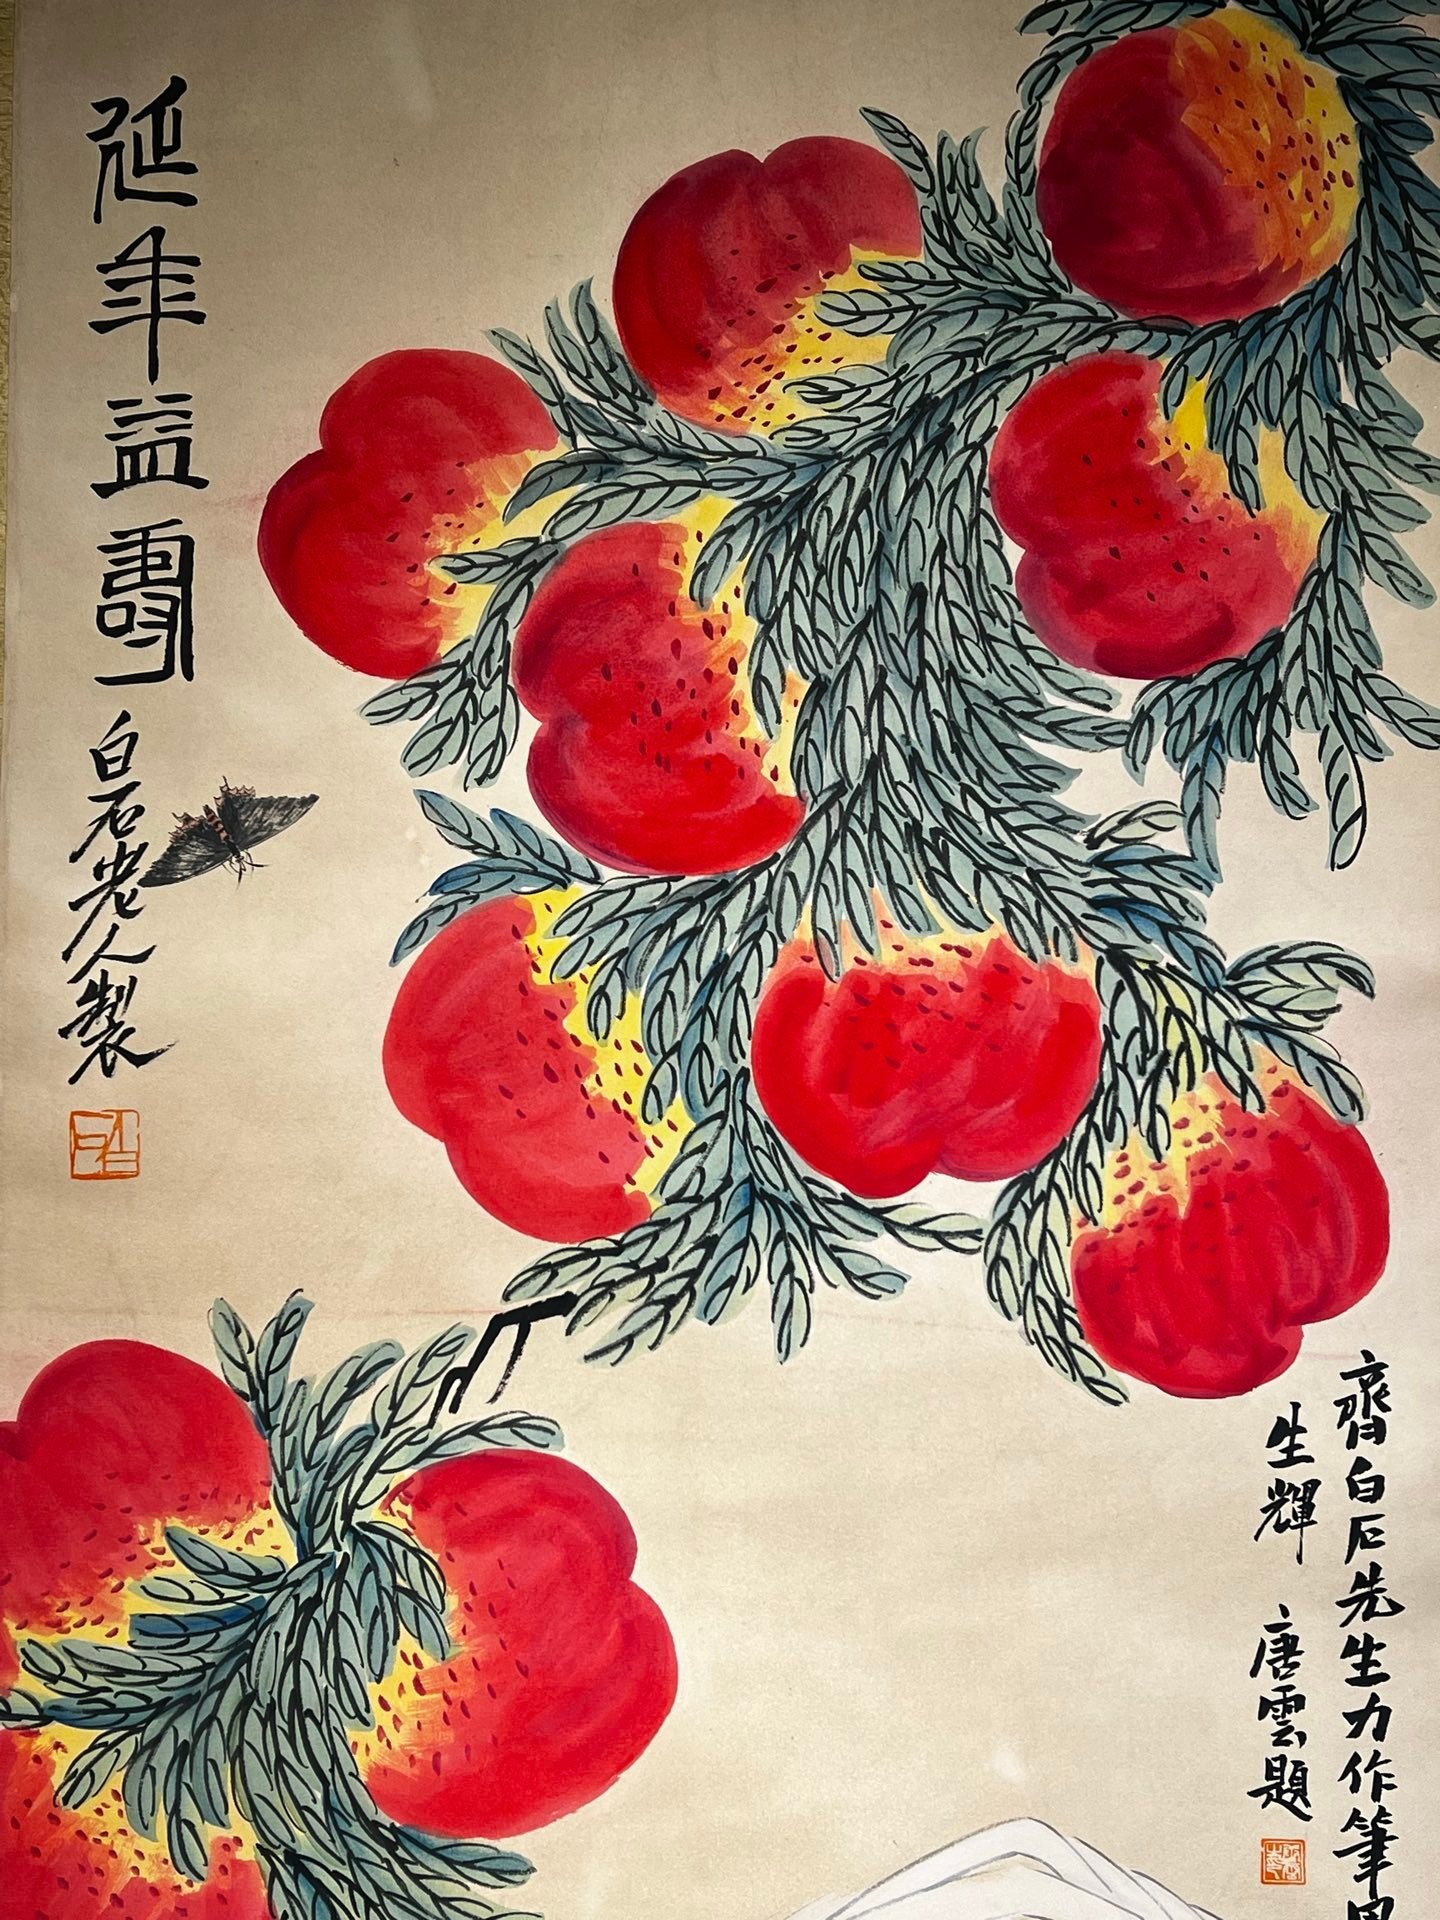 延年益壽
白石老人製
白石
齊白石先生力作筆
生輝
唐雲題